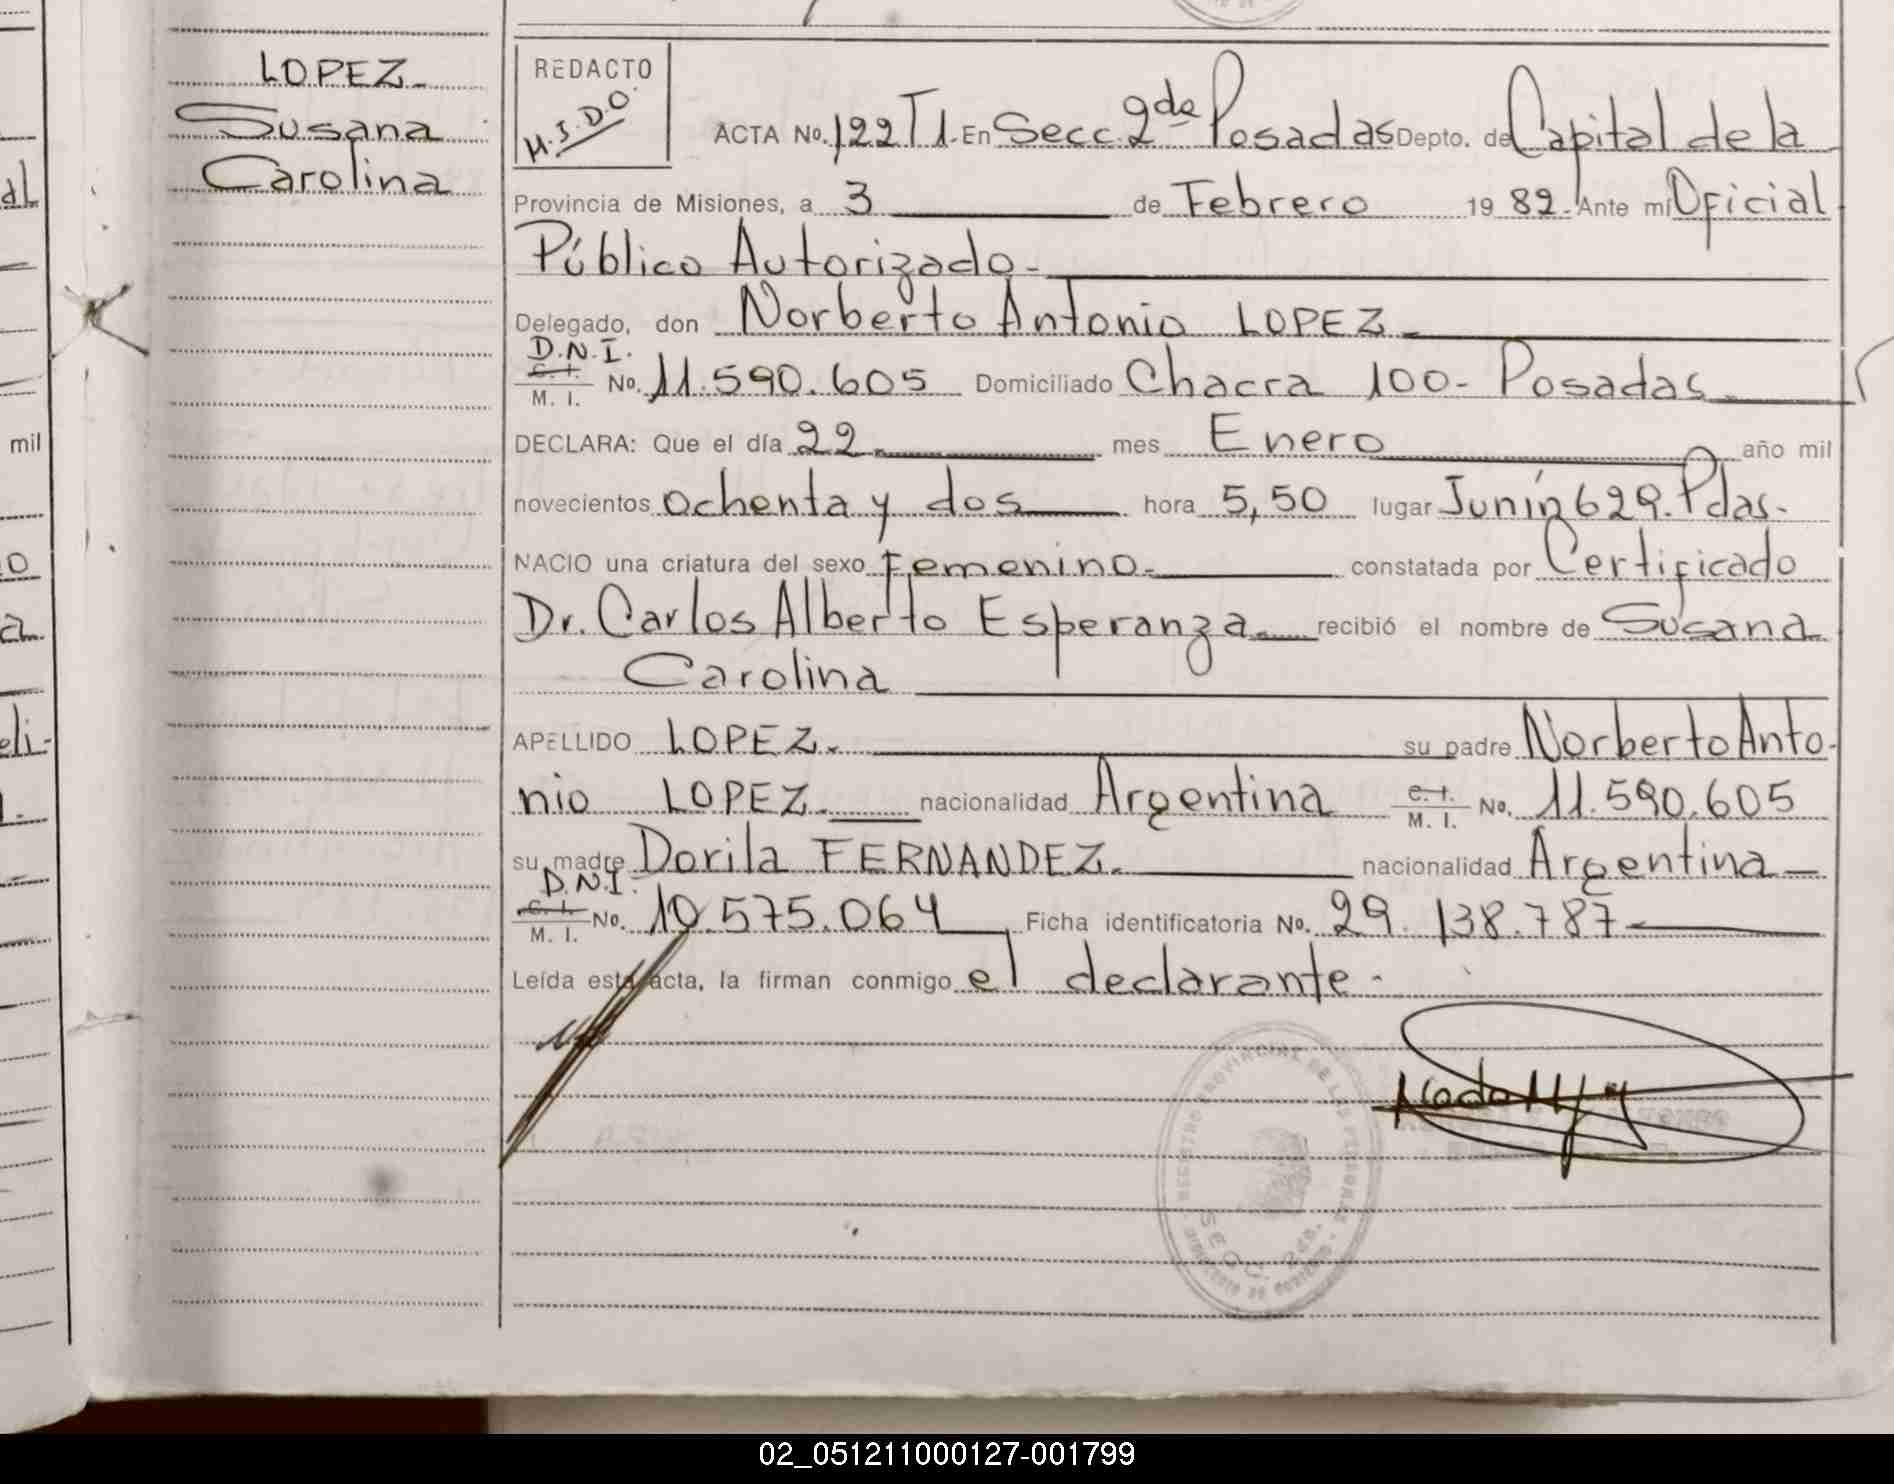 LOPEZ-
Susana
Carolina
REDACTO
H.J.D.O.
ACTA No. 122 T 1. En Secc. 2da Posadas Depto. de Capital de la
Provincia de Misiones, a 3 de Febrero 19 82. Ante mí Oficial
Público Autorizado-
Delegado, don Norberto Antonio LOPEZ-
D.N.I.
C. I. M. I. No. 11.590.605 Domiciliado Chacra 100- Posadas
DECLARA: Que el día 22 mes Enero año mil
novecientos ochenta y dos hora 5,50 lugar Junín 629. Pdas.
NACIO una criatura del sexo Femenino. constatada por Certificado
Dr. Carlos Alberto Esperanza recibió el nombre de Susana
Carolina
APELLIDO LOPEZ. su padre Norberto Anto-
nio LOPEZ. nacionalidad Argentina C. I. M. I. No. 11.590.605
su madre Dorila FERNANDEZ. nacionalidad Argentina
D.N.I.
C. I. M. I. No. 10.575.064 Ficha identificatoria No. 29.138.787
Leída esta acta, la firman conmigo el declarante.
REGISTRO PROVINCIAL DE LAS PERSONAS
SECC. 2da.
al
mil
o
a
eli-
02_051211000127-001799